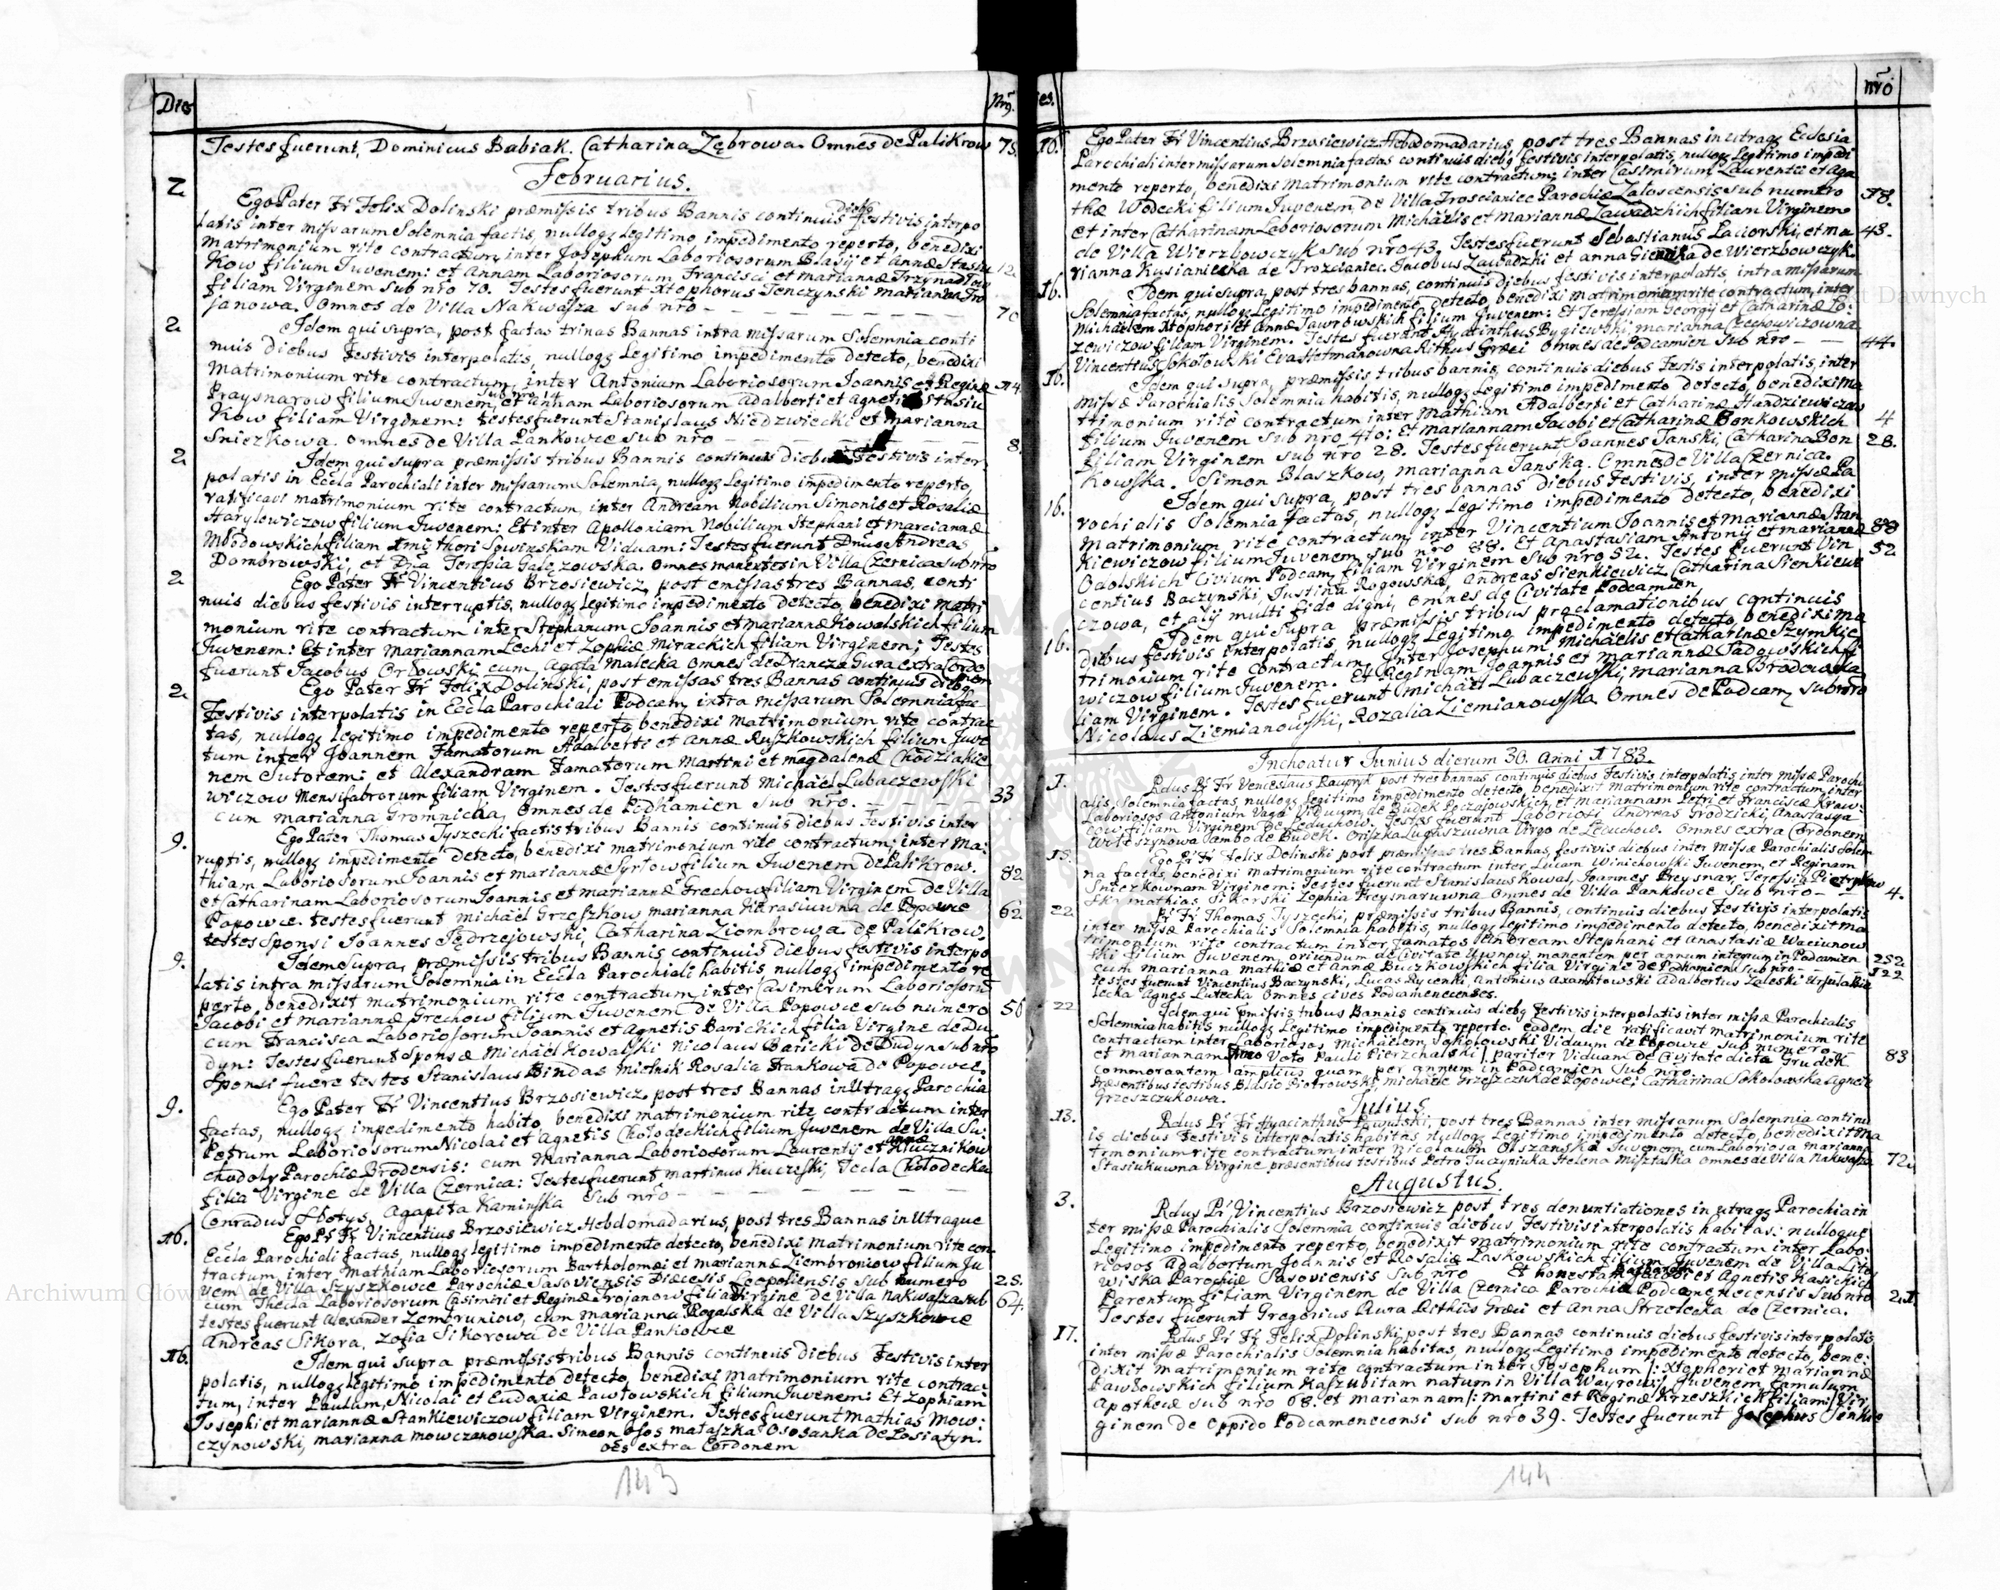 Dies
Nrō.
Testes fuerunt, Dominicus Babiak. Catharina Zębrowa. Omnes de Palikrow 75.
Februarius.
2 Ego Pater Fr Felix Dolinski præmissis tribus Bannis continuis diebq festivis interpo
latis inter missarum Solemnia factis, nulloqz Legitimo impedimento reperto, benedixi
Matrimonium rite contractum, inter Josephum Laboriosorum Blasij et Annæ Stasiu 12.
Kow filium Juvenem: et Annam Laboriosorum Francisci et Mariannæ Trzynadlow
filiam Virginem sub nro 70. Testes fuerunt Xtophorus Tenczynski Marianna Tro
janowa. Omnes de Villa Nakwasza sub nro 70
2. Idem qui supra, post factas trinas Bannas intra missarum Solemnia conti
nuis diebus festivis interpolatis, nulloqz Legitimo impedimento detecto, benedixi
Matrimonium rite contractum, inter Antonium Laboriosorum Joannis et Reginæ 14
Praysnarow filium Juvenem, et Annam Laboriosorum Adalberti et Agnetis Stasiu
Kow filiam Virginem: testes fuerunt Stanislaus Niedzwiecki et Marianna
Sniezkowa. Omnes de Villa Pankowce sub nro 8
2. Idem qui supra præmissis tribus Bannis continuis diebus festivis inter
polatis in Eccla Parochiali inter missarum Solemnia, nulloqz Legitimo impedimento reperto,
ratificavi matrimonium rite contractum, inter Andream Nobilium Simonis et Rosaliæ
Harylewiczow filium Juvenem: Et inter Apolloniam Nobilium Stephani et Marciannæ
Młodowskich filiam Viduam: Testes fuerunt Dnus Andreas
Dombrowski, et Dna Teressia Galezowska. Omnes manentes in Villa Czernica sub nro
2 Ego Pater Fr Vincentius Brzosiewicz, post emissas tres Bannas, conti
nuis diebus festivis interruptis, nulloqz Legitimo impedimento detecto, benedixi Matri
monium rite contractum inter Stephanum Joannis et Mariannæ Kowalskich filium
Juvenem: Et inter Mariannam Lechi et Zophiæ Mirackich filiam Virginem; Testes
fuerunt Jacobus Orłowski cum Agata Malecka Omnes de Brancza Gura extra Cordo
nem
2. Ego Pater Fr Felix Dolinski, post emissas tres Bannas continuis diebq
festivis interpolatis in Eccla Parochiali Podcam, intra missarum Solemnia fac
tas, nulloqz legitimo impedimento reperto benedixi Matrimonium rite contrac
tum inter Joannem Famatorum Adalberti et Annæ Ruszkowskich filium Juve
nem Sutorem: et Alexandram Famatorum Martini et Magdalenæ Chodziakie
wiczow Mensifabrorum filiam Virginem. Testes fuerunt Michael Lubaczewski
cum Marianna Gromnicka, omnes de Podkamien sub nro. 33
9. Ego Pater Thomas Tyszecki factis tribus Bannis continuis diebus festivis inter
ruptis, nulloqz impedimento detecto, benedixi matrimonium rite contractum; inter Ma:
thiam Laboriosorum Joannis et Mariannæ Syrlow filium Juvenem de Palikrow. 82
et Catharinam Laboriosorum Joannis et Mariannæ Grechow filiam Virginem de Villa
Popowce. Testes fuerunt Michael Grzeszkow Marianna Harasiuwna de Popowce 62
testes Sponsi Joannes Jędrzejowski, Catharina Ziombrowa de Palikrow.
9. Idem Supra, præmissis tribus Bannis continuis diebus festivis interpo
latis intra missarum Solemnia in Eccla Parochiali habitis nulloqz impedimento re
perto, benedixit matrimonium rite contractum inter Casimirum Laboriosorū
Jacobi et Mariannæ Grechow filium Juvenem de Villa Popowce sub numero 56
cum Francisca Laboriosorum Joannis et Agnetis Barickich filia Virgine de Du
dyn: Testes fuerunt Sponsæ Michael Kowalski Nicolaus Baricki de Dudyn sub nro
Sponsi fuere testes Stanislaus Bindas Mielnik Rosalia Frankowa de Popowce.
9. Ego Pater Fr Vincentius Brzosiewicz post tres Bannas in Utraqz Parochia
factas, nulloqz impedimento habito, benedixi matrimonium rite contractum inter
Petrum Laboriosorum Nicolai et Agnetis Chołodeckich filium Juvenem de Villa Su:
chodoły Parochiæ Brodensis: cum Marianna Laboriosorum Laurentij et Annæ Kluczników
filia Virgine de Villa Czernica: Testes fuerunt Martinus Kuczeski, Tecla Chołodecka
Conradus Słotys, Agapita Kaminska sub nro
16. Ego Pr Fr Vincentius Brzosiewicz Hebdomadarius, post tres Bannas in Utraque
Eccla Parochiali factas, nulloqz legitimo impedimento detecto, benedixi Matrimonium rite con
tractum, inter Mathiam Laboriosorum Bartholomei et Mariannæ Ziembroniow filium Ju
venem de Villa Szyszkowce Parochiæ Sasoviensis Diæcesis Leopoliensis sub numero 25.
cum Thecla Laboriosorum Casimiri et Reginæ Trojanow filia Virgine de Villa Nakwasza sub 64.
testes fuerunt Alexander Zembruniow, cum Marianna Rogalska de Villa Szyszkowce
Andreas Sikora, Zofia Sikorowa de Villa Pankowce
16. Idem qui supra præmissis tribus Bannis continuis diebus festivis inter
polatis, nulloqz legitimo impedimento detecto, benedixi Matrimonium rite contrac:
tum, inter Paulum, Nicolai et Eudoxiæ Pawłowskich filium Juvenem: Et Zophiam
Josephi et Mariannæ Stankiewiczow filiam Virginem. Testes fuerunt Mathias Mow:
czynowski, Marianna Mowczanowska. Simeon Osos Mataszka Ososanka de Łosiatyn.
oēs extra Cordonem
143
ies.
nrō
16. Ego Pater Fr Vincentius Brzosiewicz Hebdomadarius, post tres Bannas in utraqz Ecclesia
Parochiali inter missarum Solemnia factas continuis diebq festivis interpolatis, nulloqz Legitimo impedi
mento reperto, benedixi Matrimonium rite contractum, inter Casimirum Laurentii et Aga
thæ Wodecki filium Juvenem, de Villa Troscianiec Parochiæ Załoscensis sub numero 58.
et inter Catharinam Laboriosorum Michaelis et Mariannæ Zawadzkich filiam Virginem
de Villa Wierzbowczyk sub nro 43. Testes fuerunt Sebastianus Laciorski, et Ma 43.
rianna Kusianiecka de Trozcianiec. Jacobus Zawadzki et Anna de Wierzbowczyk.
16. Idem qui supra, post tres bannas, continuis diebus festivis interpolatis, intra missarum
Solemnia factas, nulloqz Legitimo impedimento detecto, benedixi Matrimonium rite contractum, inter
Michaelem Xtophori et Annæ Jawrowskich filium Juvenem: Et Teressiam Georgij et Catharinæ Lo:
zewiczow filiam Virginem. Testes fuerunt Hyacinthus Bugiewski, Marianna Czechowiczowna
Vincentius Sokołowski Eva Hetmanowna Rithus Græci Omnes de Podcamien sub nro 44.
16. Idem qui supra, præmissis tribus bannis, continuis diebus festis interpolatis, inter
missæ Parochialis Solemnia habitis, nulloqz Legitimo impedimento detecto, benedixi Ma
trimonium rite contractum inter Mathium Adalberti et Catharinæ Handziewiczow
filium Juvenem sub nro 40: et Mariannam Jacobi et Catharinæ Bonkowskich 4
filiam Virginem sub nro 28. Testes fuerunt Joannes Janski, Catharina Bon 28.
kowska. Simon Blaszkow, Marianna Janska. Omnes de Villa Czernica.
16. Idem qui supra, post tres bannas diebus festivis, inter missæ Pa
rochialis Solemnia factas, nulloqz Legitimo impedimento detecto, benedixi
Matrimonium rite contractum, inter Vincentium Joannis et Mariannæ Stan 88
Kiewiczow filium Juvenem sub nro 88. Et Anastasiam Antonij et Mariannæ
Odolskich Civium Podcam, filiam Virginem sub nro 52. Testes fuerunt Vin 52
centius Baczynski, Justina Rogowska, Andreas Sienkiewicz Catharina Sienkiewi
czowa, et alij multi fide digni, Omnes de Civitate Podcamien
16. Idem qui supra præmissis tribus proclamationibus continuis
diebus festivis interpolatis nulloqz Legitimo impedimento detecto, benedixi Ma
trimonium rite contractum, inter Josephum Michaelis et Catharinæ Szymkie
wiczow filium Juvenem. Et Reginam Joannis et Mariannæ Sadowskich fi
liam Virginem. Testes fuerunt Michael Lubaczewski, Marianna Brodowska
Nicolaus Ziemianowski, Rozalia Ziemianowska Omnes de Podcam, sub nro
Inchoatur Junius dierum 30. Anni 1783.
1. Rdus Pr Fr Venceslaus Rawryk post tres bannas continuis diebus festivis interpolatis, inter missæ Parochi
alis, Solemnia factas, nulloqz Legitimo impedimento detecto, benedixit Matrimonium rite contractum, inter
Laboriosos Antonium Vaga Viduum de Budek Poczajowskich, et Mariannam Petri et Franciscæ Kraw:
cow filiam Virginem de Leduchow. Testes fuerunt Laboriosi Andreas Grodzicki, Anastasya
Wrliszynowa Jambo de Budek. Oniszka Luguszuwna Virgo de Leduchow. Omnes extra Cordonem
15. Ego Pr Fr Felix Dolinski post præmissas tres Bannas, festivis diebus inter missæ Parochialis Solem
nia factas, benedixi Matrimonium rite contractum inter, Lucam Winichowski Juvenem, et Reginam
Sniezkownam Virginem: Testes fuerunt Stanislaus Kowal, Joannes Preysnar, Teressia Pietrykow
ska Mathias Sikorski Zophia Preysnaruwna Omnes de Villa Pankowce sub nro 4.
22. Pr Fr Thomas Tyszecki, præmissis tribus Bannis, continuis diebus festivis interpolatis
inter missæ Parochialis Solemnia habitis, nulloqz Legitimo impedimento detecto, benedixit Ma
trimonium rite contractum inter Famatos Andream Stephani et Anastasiæ Waciunow
ski filium Juvenem, oriundum de Civitate manentem per annum integrum in Podcamien 252
cum Marianna Mathiæ et Annæ Buczkowskich filia Virgine de Podkamien sub nro 522
testes fuerunt Vincentius Baczynski, Lucas Rycenki, Antonius Axamitowski Adalbertus Zaleski Ursula
lecka Agnes Lutecka Omnes cives Podcamenecenses.
22 Idem qui pmissis tribus Bannis continuis diebq festivis interpolatis inter missæ Parochialis
Solemnia habitis nulloqz Legitimo impedimento reperto. eadem die ratificavit matrimonium rite
contractum inter Laboriosos Michaelem Sokołowski Viduum de Popowce sub numero
et Mariannam Imo Voto Pauli Pierzchalski pariter Viduam de Civitate dicta Grudek 83
commorantem amplius quam per annum in Podcamien sub nro.
Præsentibus testibus Blasio Piotrowski, Michaele Grzeszczuk de Popowce; Catharina Sokolowska Agnete
Grzeszczukowa.
Julius
13. Rdus Pr Fr Hyacinthus, post tres Bannas inter missarum Solemnia continu
is diebus festivis interpolatis habitas nulloqz Legitimo impedimento detecto, benedixit Ma
trimonium rite contractum inter Nicolaum Olszanski Juvenem, cum Laboriosa Marianna
Stasiukuwna Virgine præsentibus testibus Petro Tucznyniuka Helena Misztalska Omnes de Villa Nakwasza 72.
Augustus.
3. Rdus Pr, Vincentius Brzosiewicz post tres denuntiationes in utraqz Parochia in
ter missæ Parochialis Solemnia continuis diebus festivis interpolatis habitas: nulloque
Legitimo impedimento reperto, benedixit matrimonium rite contractum inter Labo:
riosos Adalbertum Joannis et Rosaliæ Laskowskich filium Juvenem de Villa Lito
wiska Parochiæ Sasoviensis sub nro Et honestam Barbaram Jacobi et Agnetis Kasickich
Parentum filiam Virginem de Villa Czernica Parochiæ Podcamenecensis sub nro 21.
Testes fuerunt Gregorius Aura Rithûs Græci et Anna Strzelecka de Czernica.
17. Rdus Pr Fr Felix Dolinski, post tres Bannas continuis diebus festivis interpolatis
inter missæ Parochialis Solemnia habitas, nulloqz Legitimo impedimento detecto, bene:
dixit matrimonium rite contractum inter Josephum /: Xtophori et Mariannæ
Pawłowskich filium Kaszubitam natum in Villa Weyrow :/ Juvenem famulum
Apothecæ sub nro 68. et Mariannam /: Martini et Reginæ Krzeszkiek filiam :/ Vir
ginem de Oppido Podcamenecensi sub nro 39. Testes fuerunt Josephus Sienkie
144